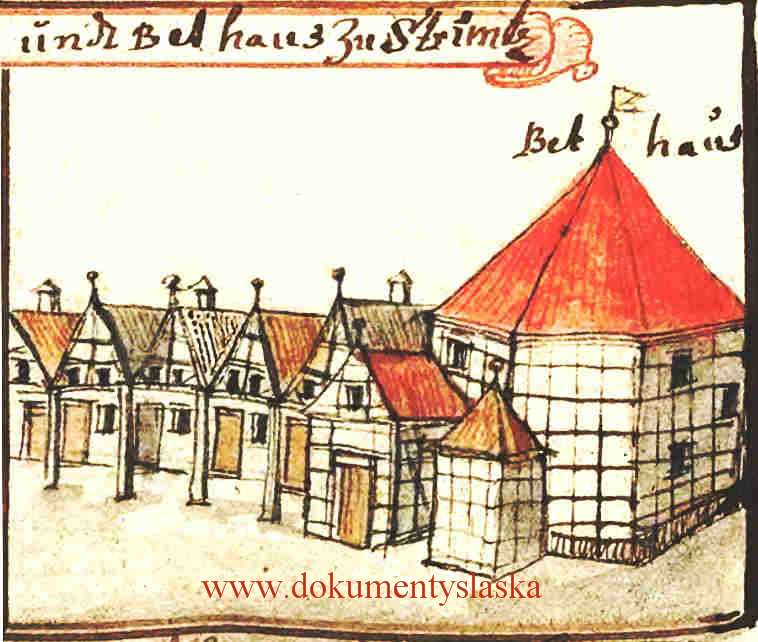 und Bet haus zu Strimtz
Bet haus
www.dokumentyslaska